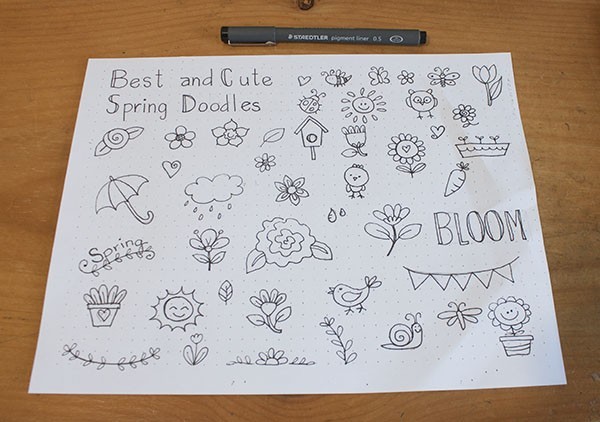 STAEDTLER pigment liner 0.5
Best and Cute
Spring Doodles
BLOOM
Spring